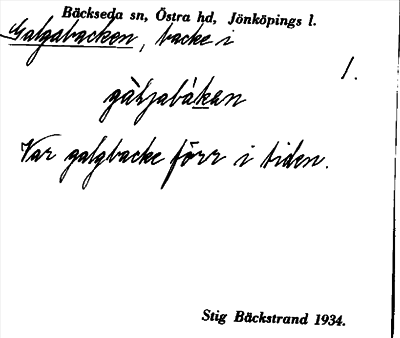 Bäckseda sn, Östra hd, Jönköpings l.
Galgabacken, backe i
1.
gàl̨jabàkan
Var galgbacke förr i tiden.
Stig Bäckstrand 1934.